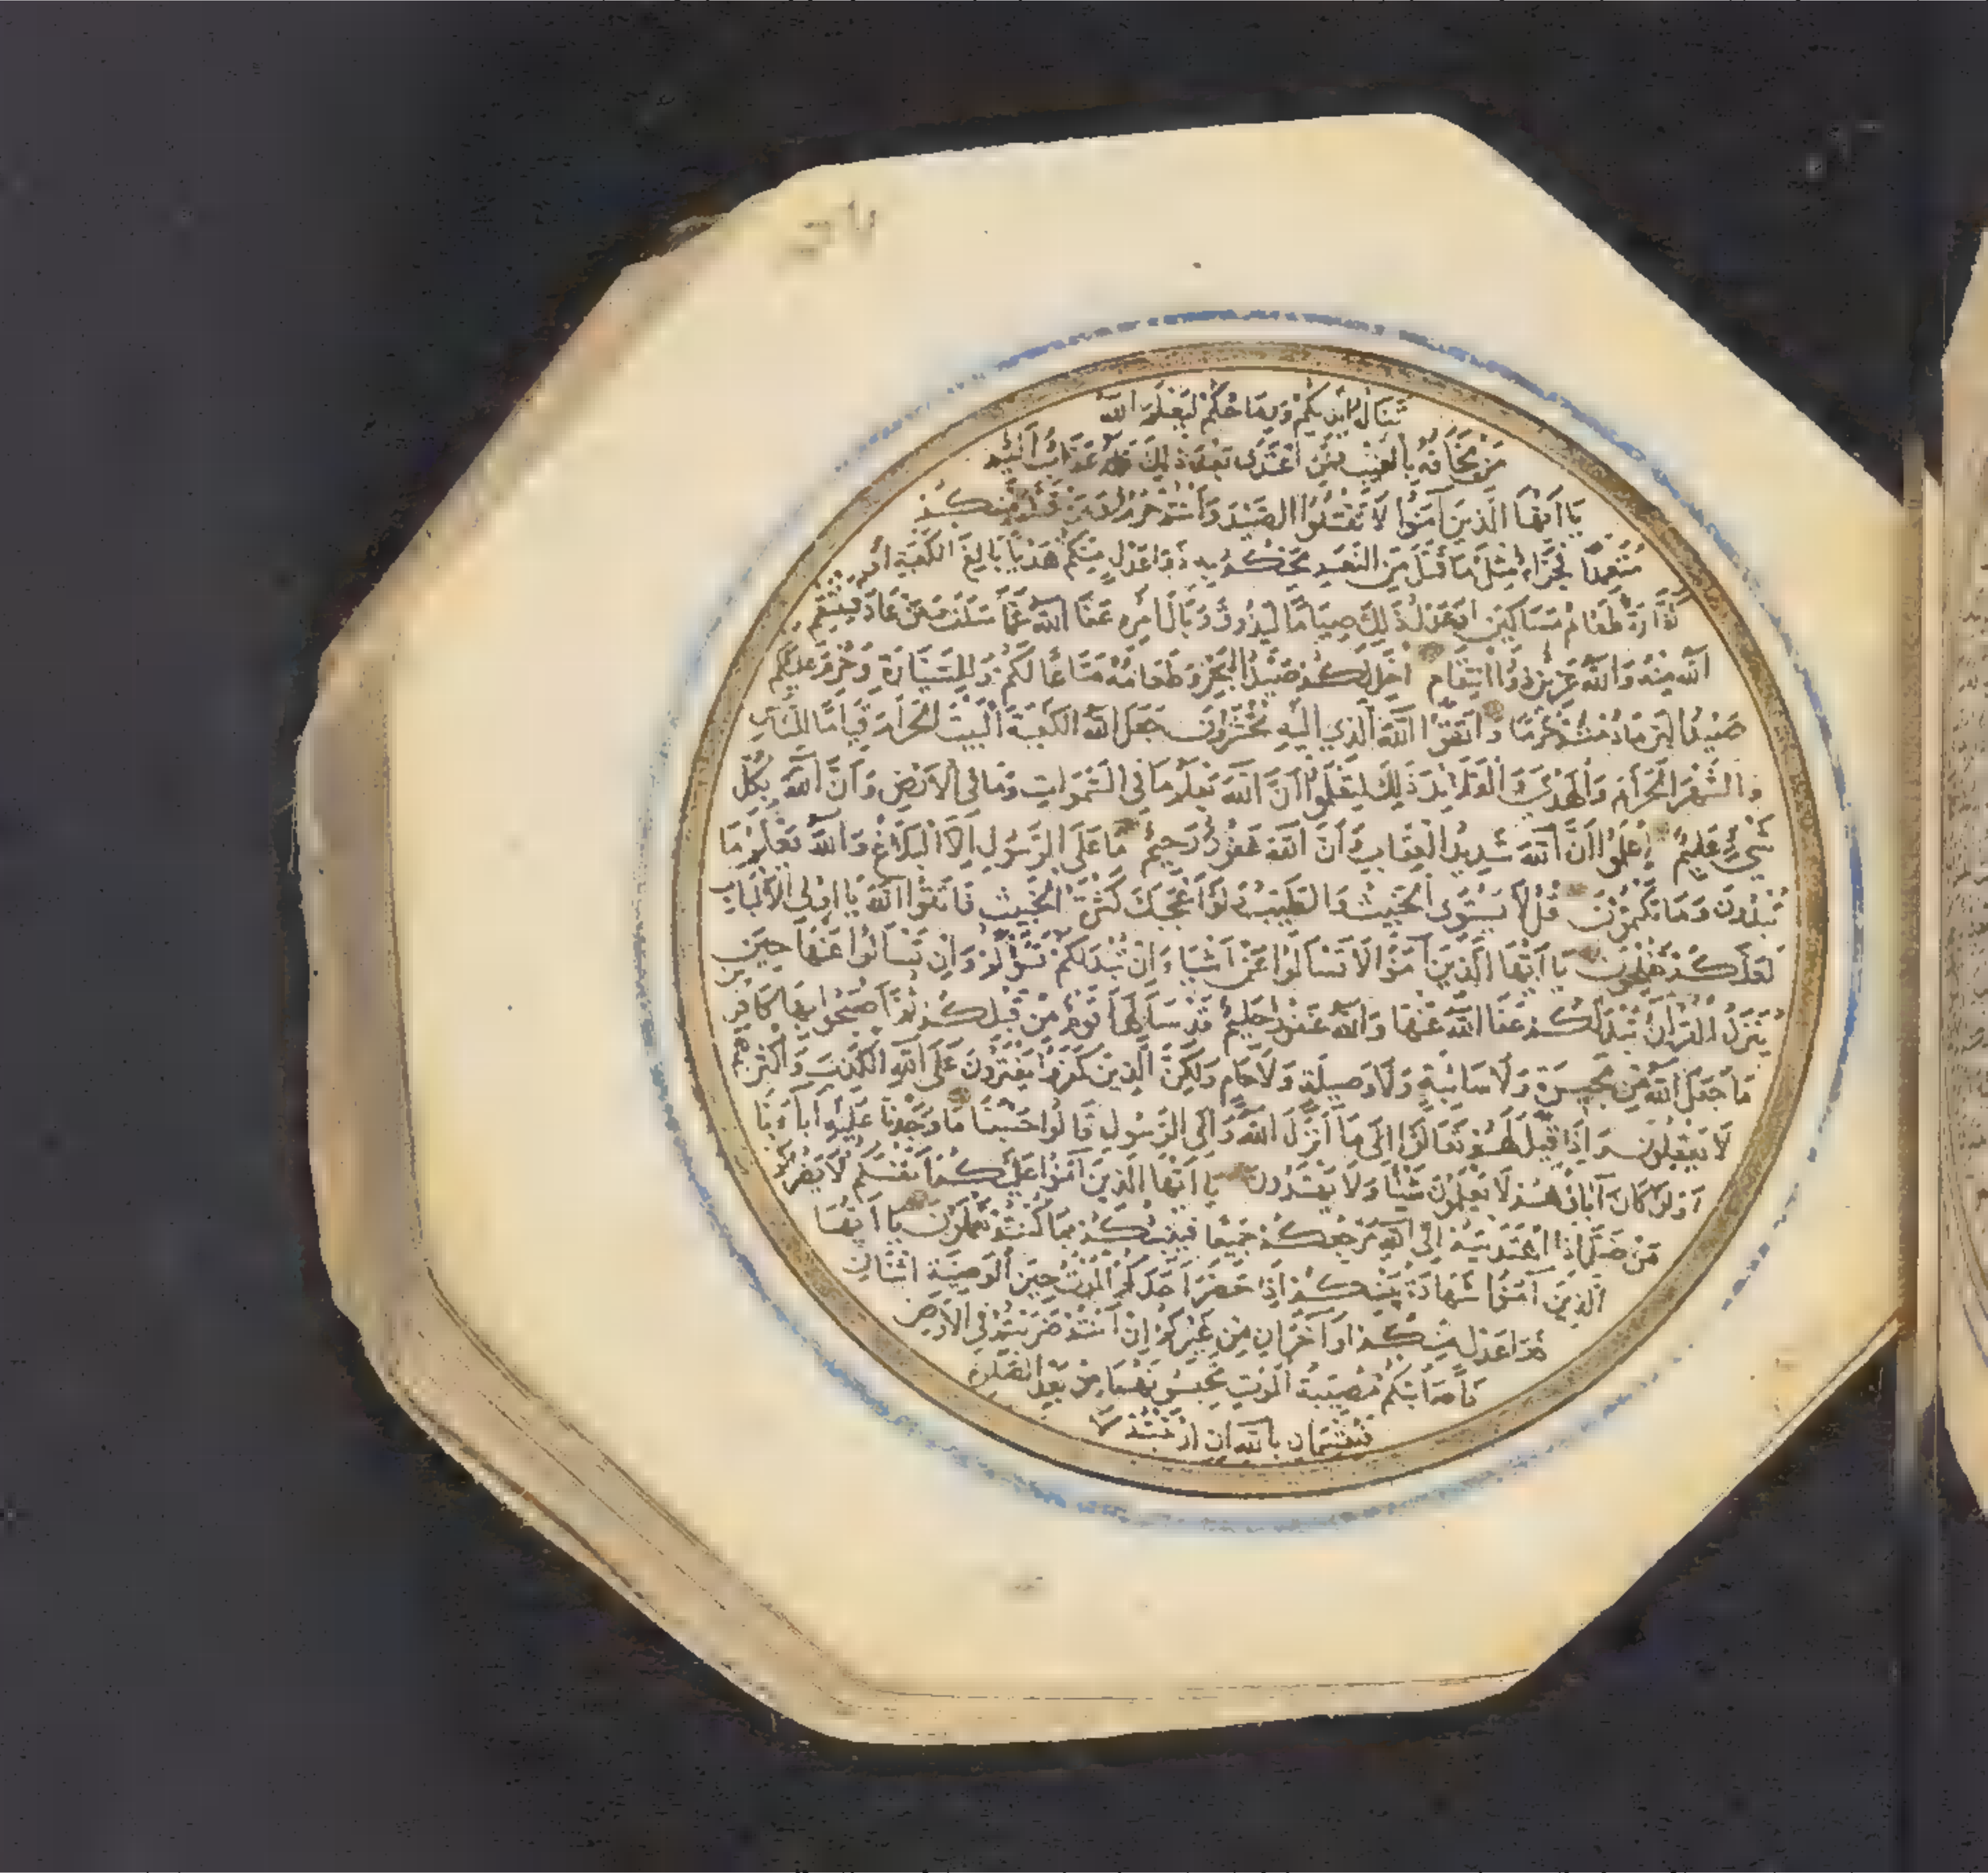 تَنَالُهُ أَيْدِيكُمْ وَرِمَاحُكُمْ لِيَعْلَمَ اللَّهُ
مَنْ يَخَافُهُ بِالْغَيْبِ فَمَنِ اعْتَدَى بَعْدَ ذَلِكَ فَلَهُ عَذَابٌ أَلِيمٌ
يَا أَيُّهَا الَّذِينَ آمَنُوا لَا تَقْتُلُوا الصَّيْدَ وَأَنْتُمْ حُرُمٌ وَمَنْ قَتَلَهُ مِنْكُمْ
مُتَعَمِّدًا فَجَزَاءٌ مِثْلُ مَا قَتَلَ مِنَ النَّعَمِ يَحْكُمُ بِهِ ذَوَا عَدْلٍ مِنْكُمْ هَدْيًا بَالِغَ الْكَعْبَةِ أَوْ
كَفَّارَةٌ طَعَامُ مَسَاكِينَ أَوْ عَدْلُ ذَلِكَ صِيَامًا لِيَذُوقَ وَبَالَ أَمْرِهِ عَفَا اللَّهُ عَمَّا سَلَفَ وَمَنْ عَادَ فَيَنْتَقِمُ
اللَّهُ مِنْهُ وَاللَّهُ عَزِيزٌ ذُو انْتِقَامٍ أُحِلَّ لَكُمْ صَيْدُ الْبَحْرِ وَطَعَامُهُ مَتَاعًا لَكُمْ وَلِلسَّيَّارَةِ وَحُرِّمَ عَلَيْكُمْ
صَيْدُ الْبَرِّ مَا دُمْتُمْ حُرُمًا وَاتَّقُوا اللَّهَ الَّذِي إِلَيْهِ تُحْشَرُونَ جَعَلَ اللَّهُ الْكَعْبَةَ الْبَيْتَ الْحَرَامَ قِيَامًا لِلنَّاسِ
وَالشَّهْرَ الْحَرَامَ وَالْهَدْيَ وَالْقَلَائِدَ ذَلِكَ لِتَعْلَمُوا أَنَّ اللَّهَ يَعْلَمُ مَا فِي السَّمَوَاتِ وَمَا فِي الْأَرْضِ وَأَنَّ اللَّهَ بِكُلِّ
شَيْءٍ عَلِيمٌ اعْلَمُوا أَنَّ اللَّهَ شَدِيدُ الْعِقَابِ وَأَنَّ اللَّهَ غَفُورٌ رَحِيمٌ مَا عَلَى الرَّسُولِ إِلَّا الْبَلَاغُ وَاللَّهُ يَعْلَمُ مَا
تُبْدُونَ وَمَا تَكْتُمُونَ قُلْ لَا يَسْتَوِي الْخَبِيثُ وَالطَّيِّبُ وَلَوْ أَعْجَبَكَ كَثْرَةُ الْخَبِيثِ فَاتَّقُوا اللَّهَ يَا أُولِي الْأَلْبَابِ
لَعَلَّكُمْ تُفْلِحُونَ يَا أَيُّهَا الَّذِينَ آمَنُوا لَا تَسْأَلُوا عَنْ أَشْيَاءَ إِنْ تُبْدَ لَكُمْ تَسُؤْكُمْ وَإِنْ تَسْأَلُوا عَنْهَا حِينَ
يُنَزَّلُ الْقُرْآنُ تُبْدَ لَكُمْ عَفَا اللَّهُ عَنْهَا وَاللَّهُ غَفُورٌ حَلِيمٌ قَدْ سَأَلَهَا قَوْمٌ مِنْ قَبْلِكُمْ ثُمَّ أَصْبَحُوا بِهَا كَافِرِينَ
مَا جَعَلَ اللَّهُ مِنْ بَحِيرَةٍ وَلَا سَائِبَةٍ وَلَا وَصِيلَةٍ وَلَا حَامٍ وَلَكِنَّ الَّذِينَ كَفَرُوا يَفْتَرُونَ عَلَى اللَّهِ الْكَذِبَ وَأَكْثَرُهُمْ
لَا يَعْقِلُونَ وَإِذَا قِيلَ لَهُمْ تَعَالَوْا إِلَى مَا أَنْزَلَ اللَّهُ وَإِلَى الرَّسُولِ قَالُوا حَسْبُنَا مَا وَجَدْنَا عَلَيْهِ آبَاءَنَا
أَوَلَوْ كَانَ آبَاؤُهُمْ لَا يَعْلَمُونَ شَيْئًا وَلَا يَهْتَدُونَ يَا أَيُّهَا الَّذِينَ آمَنُوا عَلَيْكُمْ أَنْفُسَكُمْ لَا يَضُرُّكُمْ
مَنْ ضَلَّ إِذَا اهْتَدَيْتُمْ إِلَى اللَّهِ مَرْجِعُكُمْ جَمِيعًا فَيُنَبِّئُكُمْ بِمَا كُنْتُمْ تَعْمَلُونَ يَا أَيُّهَا
الَّذِينَ آمَنُوا شَهَادَةُ بَيْنِكُمْ إِذَا حَضَرَ أَحَدَكُمُ الْمَوْتُ حِينَ الْوَصِيَّةِ اثْنَانِ
ذَوَا عَدْلٍ مِنْكُمْ أَوْ آخَرَانِ مِنْ غَيْرِكُمْ إِنْ أَنْتُمْ ضَرَبْتُمْ فِي الْأَرْضِ
فَأَصَابَتْكُمْ مُصِيبَةُ الْمَوْتِ تَحْبِسُونَهُمَا مِنْ بَعْدِ الصَّلَوةِ
فَيُقْسِمَانِ بِاللَّهِ إِنِ ارْتَبْتُمْ لَا